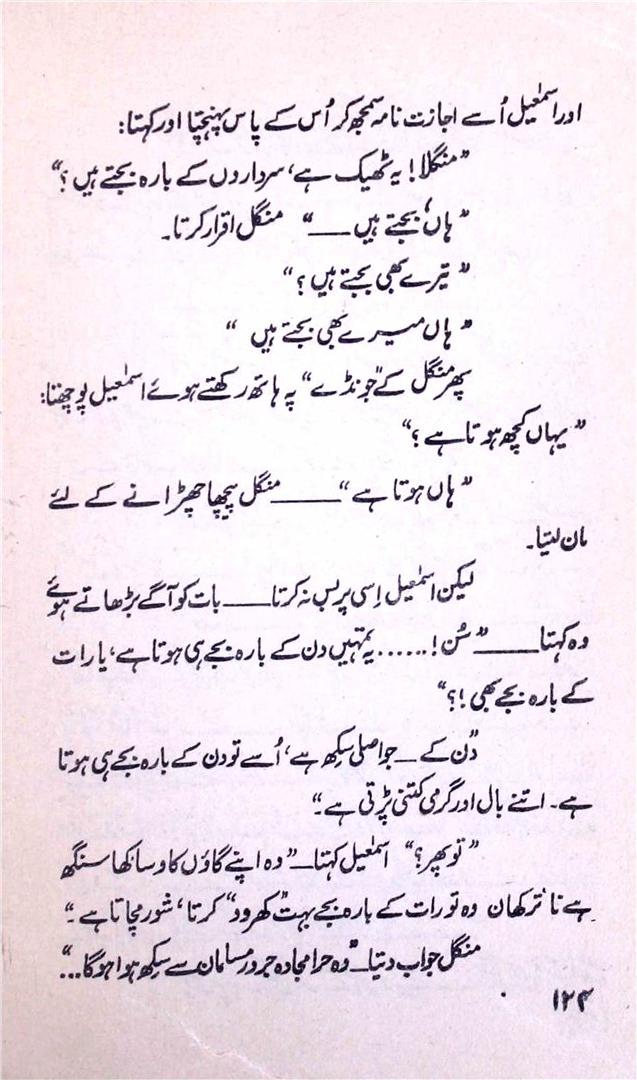 اور اسمٰعیل اُسے اجازت نامہ سمجھ کر اُس کے پاس پہنچتا اور کہتا:
”منگلا! یہ ٹھیک ہے، سرداروں کے بارہ بجتے ہیں؟“
”ہاں، بجتے ہیں ــــ“ منگل اقرار کرتا۔
”تیرے بھی بجتے ہیں؟“
”ہاں میرے بھی بجتے ہیں“
پھر منگل کے ”جونڈے“ پہ ہاتھ رکھتے ہوئے اسمٰعیل پوچھتا:
”یہاں کچھ ہوتا ہے؟“
”ہاں ہوتا ہے“ ــــــ منگل پیچھا چھڑانے کے لئے
مان لیتا۔
لیکن اسمٰعیل اِسی پر بس نہ کرتا ــــــ بات کو آگے بڑھاتے ہوئے
وہ کہتا ــــــ ”سُن!...... یہ تمہیں دن کے بارہ بجے ہی ہوتا ہے، یا رات
کے بارہ بجے بھی!؟“
”دن کے ــ جو اصلی سکھ ہے، اُسے تو دن کے بارہ بجے ہی ہوتا
ہے۔ اتنے بال اور گرمی کتنی پڑتی ہے۔“
”تو پھر؟“ اسمٰعیل کہتا ــ ”وہ اپنے گاؤں کا وساکھا سنگھ
ہے نا ترکھان وہ تو رات کے بارہ بجے بہت ”کھرود“ کرتا، شور مچاتا ہے۔“
منگل جواب دیتا ــ ”وہ حرامجادہ جرور مسلمان سے سکھ ہوا ہوگا...“
۱۲۴